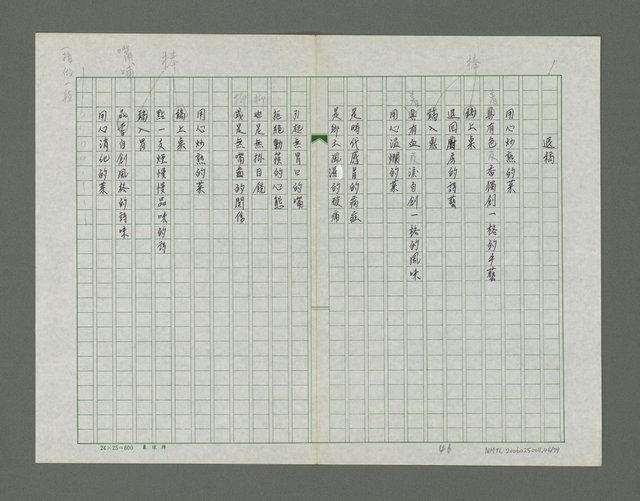 退稿
用心炒熟的菜
具有色及香獨創一格的手藝
端上桌
退回廚房的詩藝
端入
具有血及淚自創一格的風味
用心溫爛的菜
是時代感冒的病症
是鄉土風濕的酸痛
引起無胃口的嘴
拒絕動筷的心態
也是無掛目鏡
或是無嘴齒的關係
用心炒熟的菜
端上桌
端入胃
點一支煙慢慢品味的詩
品嚐自創風格的詩味
用心消化的菜
捧
捧
嘴哺
24×25=600
46
NMTL 20060250011.46/79